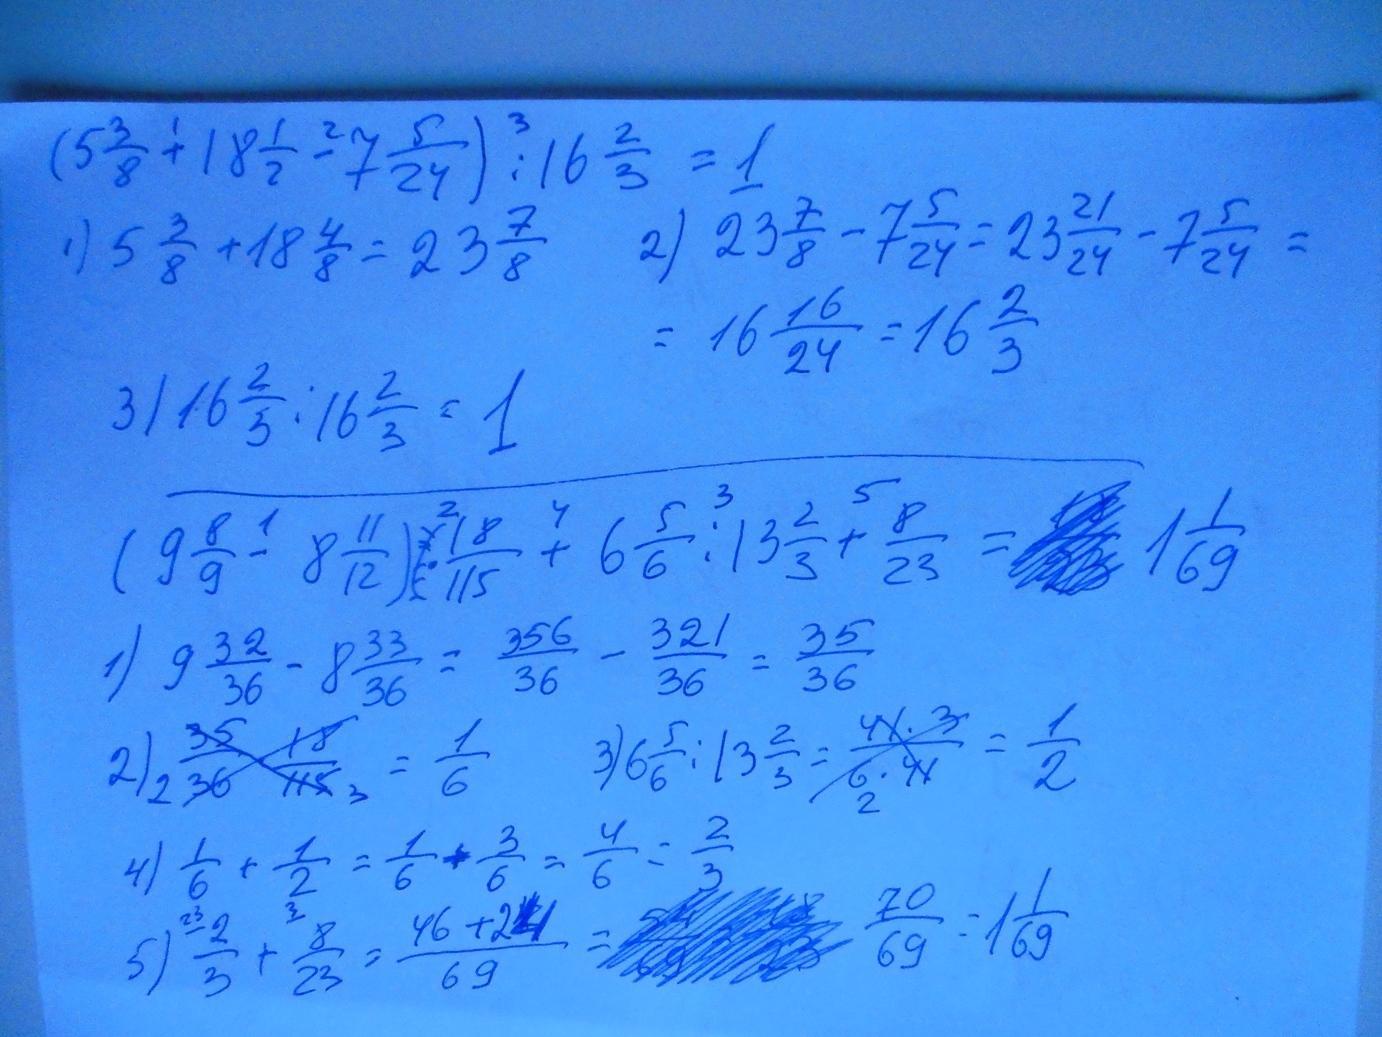 (5 3/8 + 18 1/2 - 7 5/24) : 16 2/3 = 1
1) 5 3/8 + 18 4/8 = 23 7/8
2) 23 7/8 - 7 5/24 = 23 21/24 - 7 5/24 =
= 16 16/24 = 16 2/3
3) 16 2/3 : 16 2/3 = 1
(9 8/9 - 8 11/12) 18/115 + 6 5/6 : 13 2/3 + 8/23 = 1 1/69
1) 9 32/36 - 8 33/36 = 356/36 - 321/36 = 35/36
2) 35/36 18/115 = 1/6
3) 6 5/6 : 13 2/3 = 41·3/6·41 = 1/2
4) 1/6 + 1/2 = 1/6 + 3/6 = 4/6 = 2/3
5) 2/3 + 8/23 = 46+24/69 = 70/69 = 1 1/69